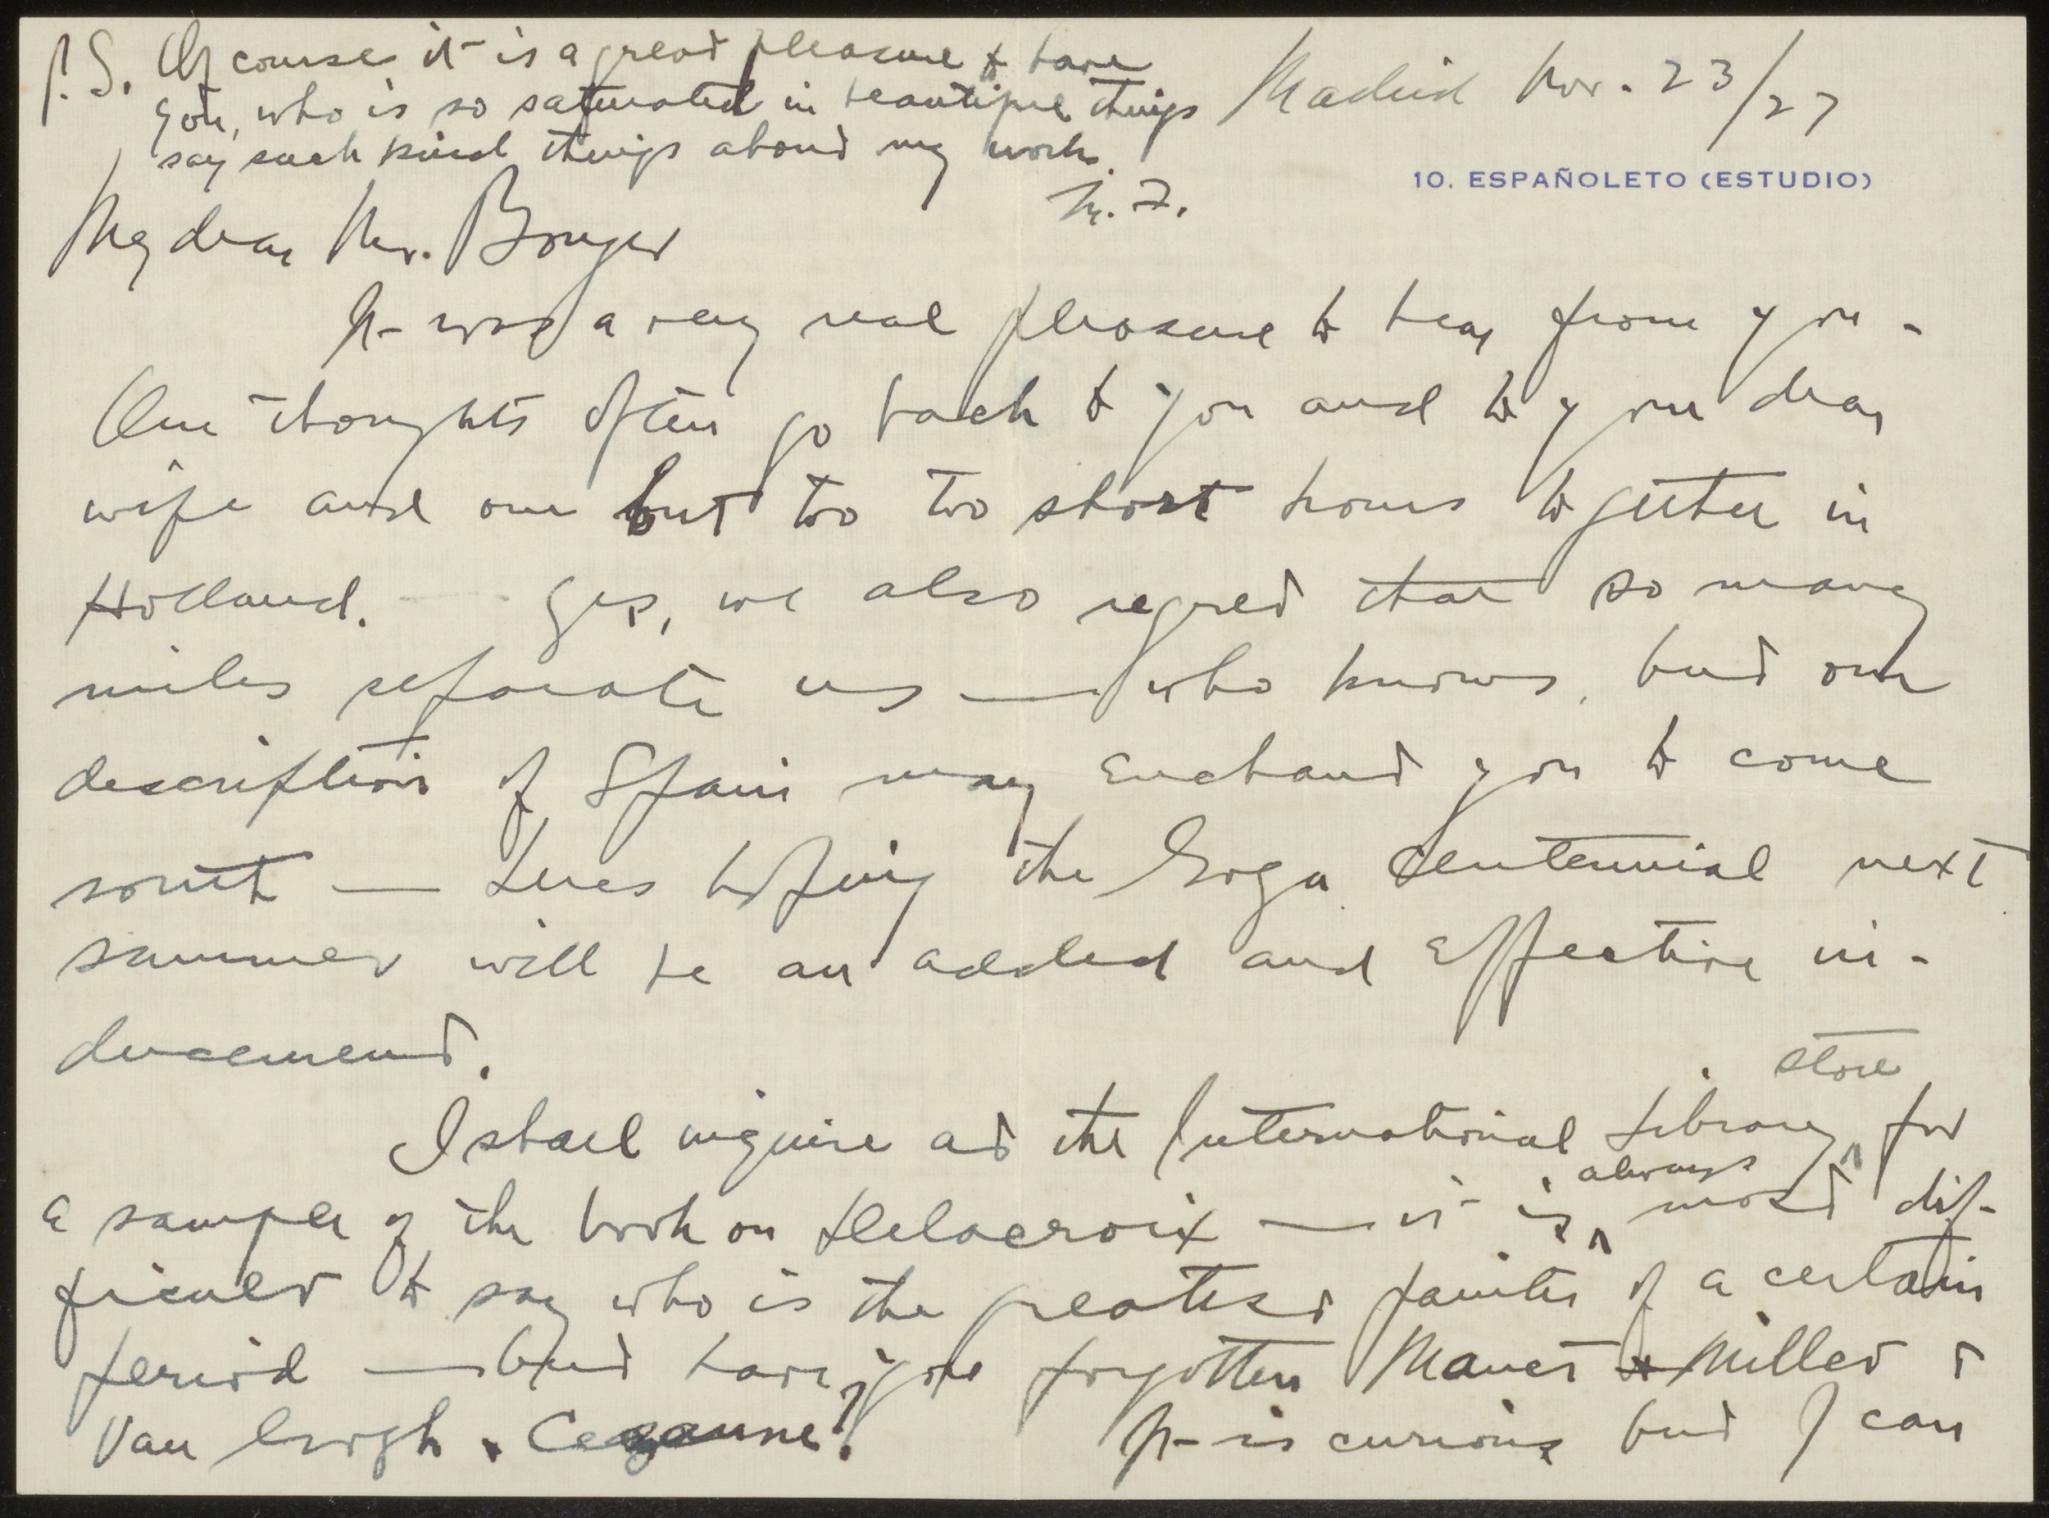 P.S. Of course it is a great pleasure to have
you, who is so saturated in beautiful things
say such kind things about my work.
M. F.
Madrid Nov. 23/27
10. ESPAÑOLETO (ESTUDIO)
My dear Mr. Bonger
It was a very real pleasure to hear from you -
Our thoughts often go back to you and to your dear
wife and our but too too short hours together in
Holland. Yes, we also regret that so many
miles separate us — who knows, but our
description of Spain may enchant you to come
south — Lets hoping the Goya Centennial next
summer will be an added and effective in-
ducement.
I shall inquire at the International Library store for
a sample of the book on Delacroix — it is always most dif-
ficult to say who is the greatest painter of a certain
period — but have you forgotten Manet & Millet &
Van Gogh & Cezanne? It is curious but I can